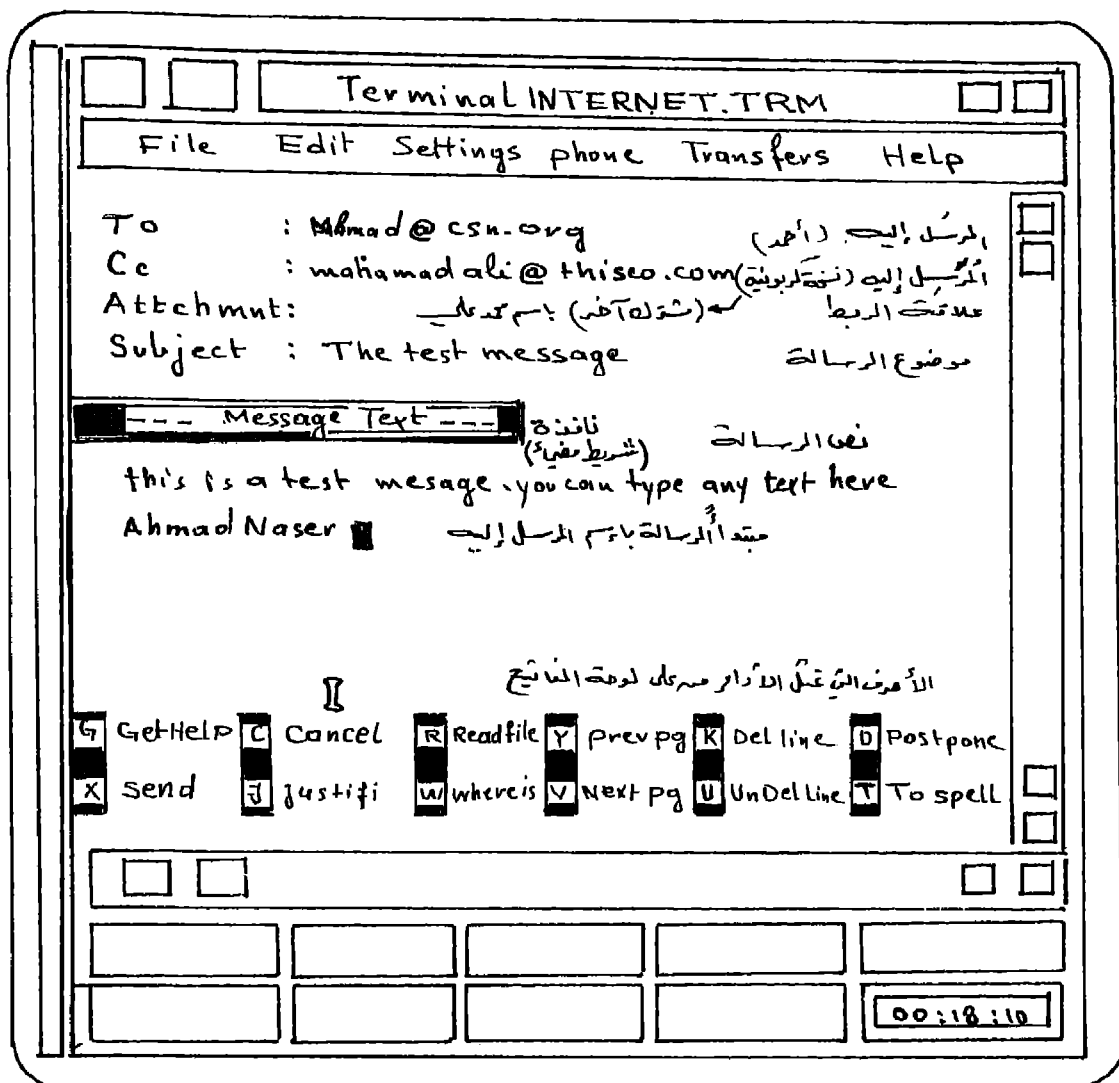 Terminal INTERNET.TRM
File Edit Settings phone Transfers Help
To : Ahmad@csn.org المرسل إليه (أحمد)
Cc : mahamadali@thisco.com المرسل إليه (نسخة كربونية)
Attchmnt: (مشترك آخر) باسم محمد علي علاقة الربط
Subject : The test message موضوع الرسالة
--- Message Text --- نافذة (شريط مضيء) نص الرسالة
this is a test mesage. you can type any text here
Ahmad Naser مبتدأ الرسالة بإسم المرسل إليه
الأحرف التي تمثل الأوامر من على لوحة المفاتيح
G GetHelp C Cancel R Readfile Y prev pg K Del line O Postpone
X Send J justifi W whereis V Next pg U UnDel line T To spell
00:18:10